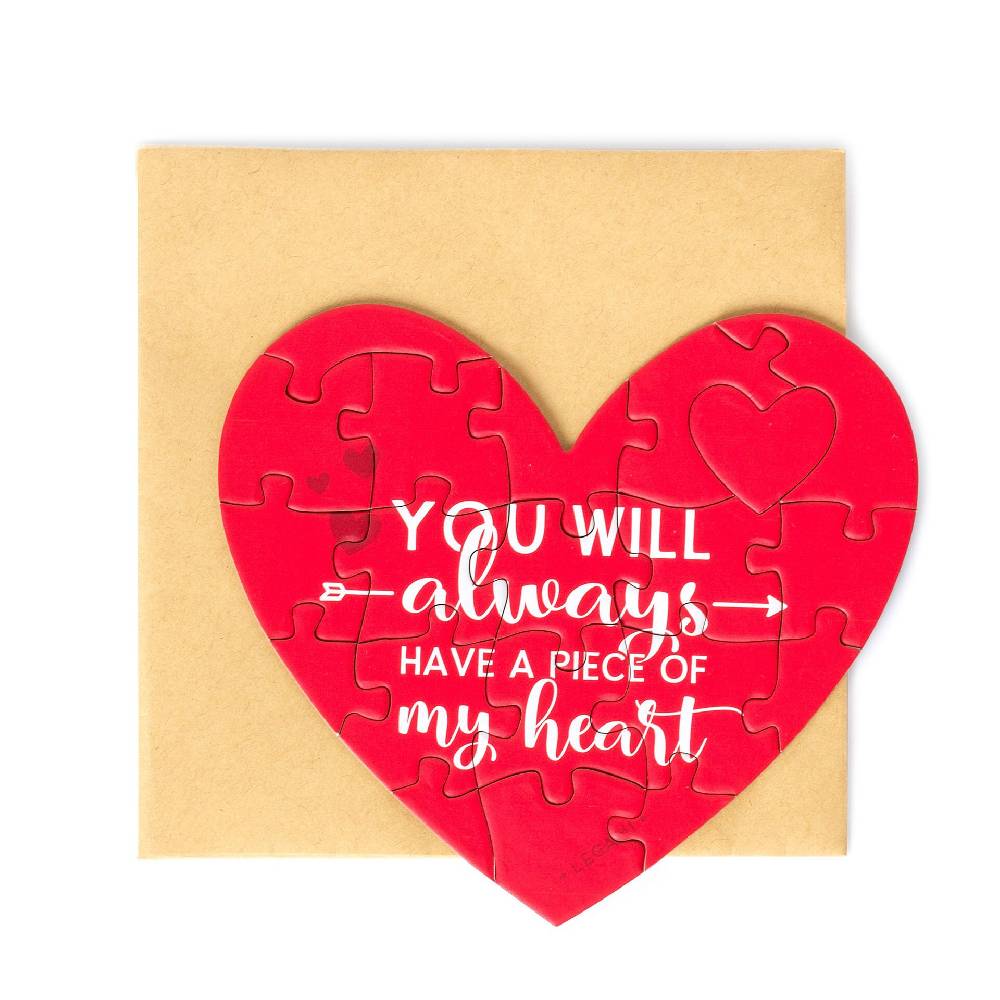 YOU WILL
always
HAVE A PIECE OF
my heart